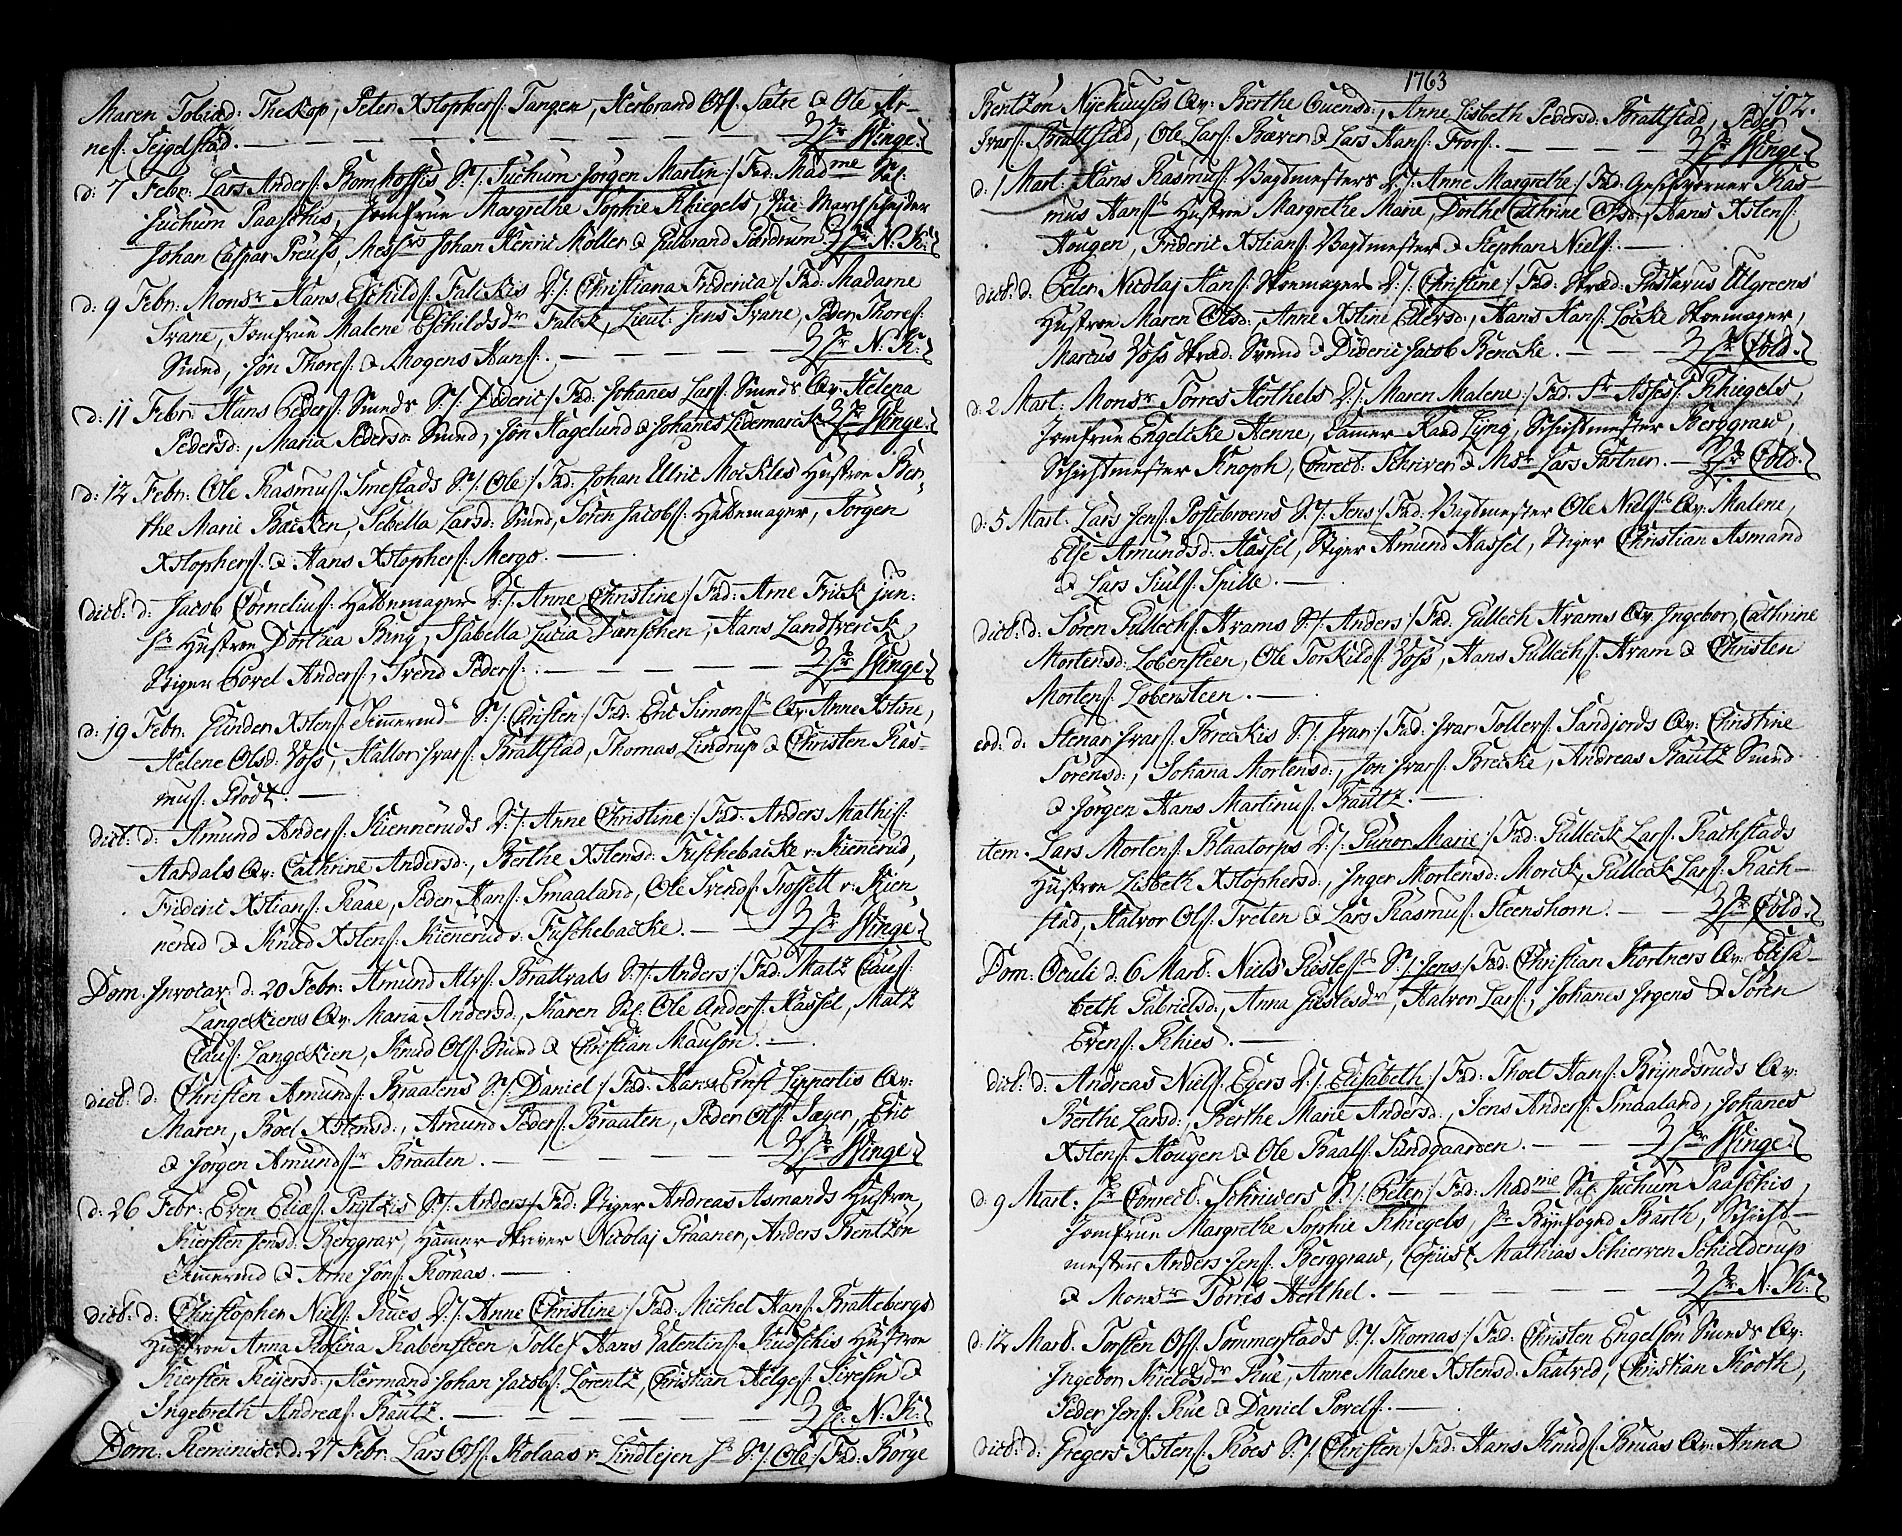 Maren Tobiæd: Theskop, Peter Xstophers: Tangen, Herbrand Ols: Sætre & Ole Ar-
nes: Seigelstad. — Hr Winge.
d: 7 Febr: Lars Anders: Bomhoffis S:/: Juchum Jørgen Martin:/ Fad: Madme Sal:
Juchum Paaschis, Jomfrue Margrethe Sophie Rhiegels,
Johan Caspar Preuss, Messrs Johan Henric Møller & Gulbrand Hr N. K:
d: 9 Febr: Monsr Hans Eschilds: Falckis D:/: Christiana Friderica:/ Fad: Madame
Svane, Jomfrue Malene Eschildsdr Falck, Lieut: Jens Svane, Peder Thores:
Sund, Jøn Thores: & Mogens Hans: — Hr N. K:
d: 11 Febr: Hans Peders: Sunds S:/: Dideric:/ Fad: Johanes Lars: Sunds Qv: Helena
Pedersd:, Maria Pedersd: Sund, Jøn Hagelund & Johanes Lidemarck Hr Winge.
d: 12 Febr: Ole Rasmus: Smestads S:/: Ole:/ Fad: Johan Ulric Mockles Hustroe Ber-
the Marie Backen, Sebella Larsd: Sund, Søren Jacobs: Hattemager, Jørgen
Xstophers: & Hans Xstophers: Mergo. —
dict: d: Jacob Cornelius: Hattemagers D:/: Anne Christine:/ Fad: Arne Frick jun:
Hr Hustroe Dorthea Bing, Isabella Lucia, Hans Landsverck,
Stiger Povel Anders:, Svend Peders: — Hr Winge.
d: 19 Febr: Gunder Xstens: Timerud S:/: Christen:/ Fad: Eric Simons: Qv: Anne Xstine,
Helene Olsd: Voss, Hallor Ivars: Brattstad, Thomas Lindrup & Christen Ras-
mus: Rodt. —
dict: d: Amund Anders: Kienneruds D:/: Anne Christine:/ Fad: Anders Mathis:
Aardals Qv: Cathrine Andersd:, Berthe Xstensd: Fuschebacke v: Kienerud,
Frideric Xstians: Raae, Peder Hans: Smaaland, Ole Svends: v: Kien-
nerud & Knud Xstens: Kienerud v: Fuschebacke. — Hr Winge.
Dom: Invocav: d: 20 Febr: Amund Alvs: Brattvals S:/: Anders:/ Fad: Matz Claus:
Langekiens Qv: Maria Andersd:, Karen Sal: Ole Anders: Hassel, Matz
Claus: Langekien, Knud Ols: Sund & Christian Mauson. —
dict: d: Christen Amunds: Braatens S:/: Daniel:/ Fad: Hans Ernst Lippertis Qv:
Maren, Boel Xstensd:, Amund Peders: Braaten, Peder Ols: Jæger, Eric
& Jørgen Amundsr Braaten. — Hr Winge.
d: 26 Febr: Even Elias: S:/: Anders:/ Fad: Stiger Andreas Asmands Hustroe,
Kiersten Jensd: Berggrav, Hamer-Skriver Nicolaj Praaner, Anders Bentzøn
Timerud & Arne Jøns: Koraas. —
dict: d: Christopher Niels: Rues D:/: Anne Christine:/ Fad: Michel Hans: Brattebergs
Hustroe Anna Rosina Rabensteen Tolles Hans Valentins: Hustroe
Kiersten Reijersd:, Hermand Johan Jacobs: Lorentz, Christian Helges: &
Ingebreth Andreæs: Rautz. — Hr N. K:
Dom: Reminisc: d: 27 Febr: Lars Ols: Kolaas v: Lindtejen Hr S:/: Ole:/ Fad: Børge
1763
102.
Bentzøn Nyehuuses Qv: Berthe Evensd:, Anne Lisbeth Pedersd: Brattstad, Peder
Ivars: Brattstad, Ole Lars: Bæver & Lars Hans: Fros: — Hr Winge.
d: 1 Mart: Hans Rasmus: Vagtmesters D:/: Anne Margrethe:/ Fad: Geschworner Ras-
mus Hans: Hustroe Margrethe Marie, Dorthe Cathrine Olsd:, Hans Xstens:
Hougen, Frideric Xstians: Vagtmester & Stephan Niels: —
dict: d: Peter Nicolaj Hans: Skoemagers D:/: Christine:/ Fad: Skræd: Gustavus Ulgreens
Hustroe Maren Olsd:, Anne Xstine Eilersd:, Hans Hans: Løcke Skoemager,
Marcus Voss Skræd: Svend & Dideric Jacob Bencke. — Hr Cold.
d: 2 Mart: Monsr Torres Herthels D:/: Maren Malene:/ Fad: Fr Assess: Rhiegels,
Jomfrue Engelcke Henne, Camer-Raad Lyng, Schichtmester Berggraw,
Schichtmester Knoph, Conrect: Schriver & Msr Lars Gartner. — Hr Cold.
d: 5 Mart: Lars Jens: Postebroens S:/: Jens:/ Fad: Vagtmester Ole Niels: Qv: Malene,
Else Amundsd: Hassel, Stiger Amund Hassel, Stiger Christian Asmand
& Lars Siuls: Spille. —
dict: d: Søren Gullech: Krams S:/: Anders:/ Fad: Gullech Krams Qv: Ingebor, Cathrine
Mortensd: Løbensteen, Ole Torkilds: Voss, Hans Gullech: Kram & Christen
Mortens: Løbensteen. —
eod: d: Stenar Ivars: Breckis S:/: Ivar:/ Fad: Ivar Tollers: Sandjords Qv: Christine
Sørensd:, Johana Mortensd:, Jon Ivars: Brecke, Andreas Rautz Sund
& Jørgen Hans Martinus: Rautz. —
item. Lars Mortens: Blaatorps D:/: Gunor Marie:/ Fad: Gulleck Lars: Rachstads
Hustroe Lisbeth Xstophersd:, Inger Mortensd: Morck, Gulleck Lars: Rach-
stad, Halvor Ols: Treten & Lars Rasmus: Steenshorn. — Hr Cold.
Dom: Oculi d: 6 Mart: Niels Gisless: S:/: Jens:/ Fad: Christian Kortners Qv: Elisa-
beth Gabrielsd:, Anna Gislesdr, Halvor Lars:, Johanes Jrgens & Søren
Evens: Rhies. —
dict: d: Andreas Niels: Egers D:/: Elisabeth:/ Fad: Thoel Hans: Bryndsruds Qv:
Berthe Larsd:, Berthe Marie Andersd:, Jens Anders: Smaaland, Johanes
Xstens: Hougen & Ole Paals: Sundgaarden. — Hr Winge.
d: 9 Mart: Hr Conrect: Schriwers S:/: Peter:/ Fad: Madme Sal: Juchum Paaschis,
Jomfrue Margrethe Sophie Rhiegels, Hr Byefoged Barth, Schicht-
mester Anders Jens: Berggraw, Copiist Mathias Schierven Schielderup
& Monsr Torris Herthel. — Hr N. K:
d: 12 Mart: Torsten Ols: Sommerstads S:/: Thomas:/ Fad: Christen Engelsøn Sunds Qv:
Ingebor Kieldsdr Rue, Anne Malene Xstensd: Saatved, Christian Kooth,
Peder Jens: Rue & Daniel Povels: —
dict: d: Gregers Xstens: Koes S:/: Christen:/ Fad: Hans Knuds: Bruas Qv: Anna